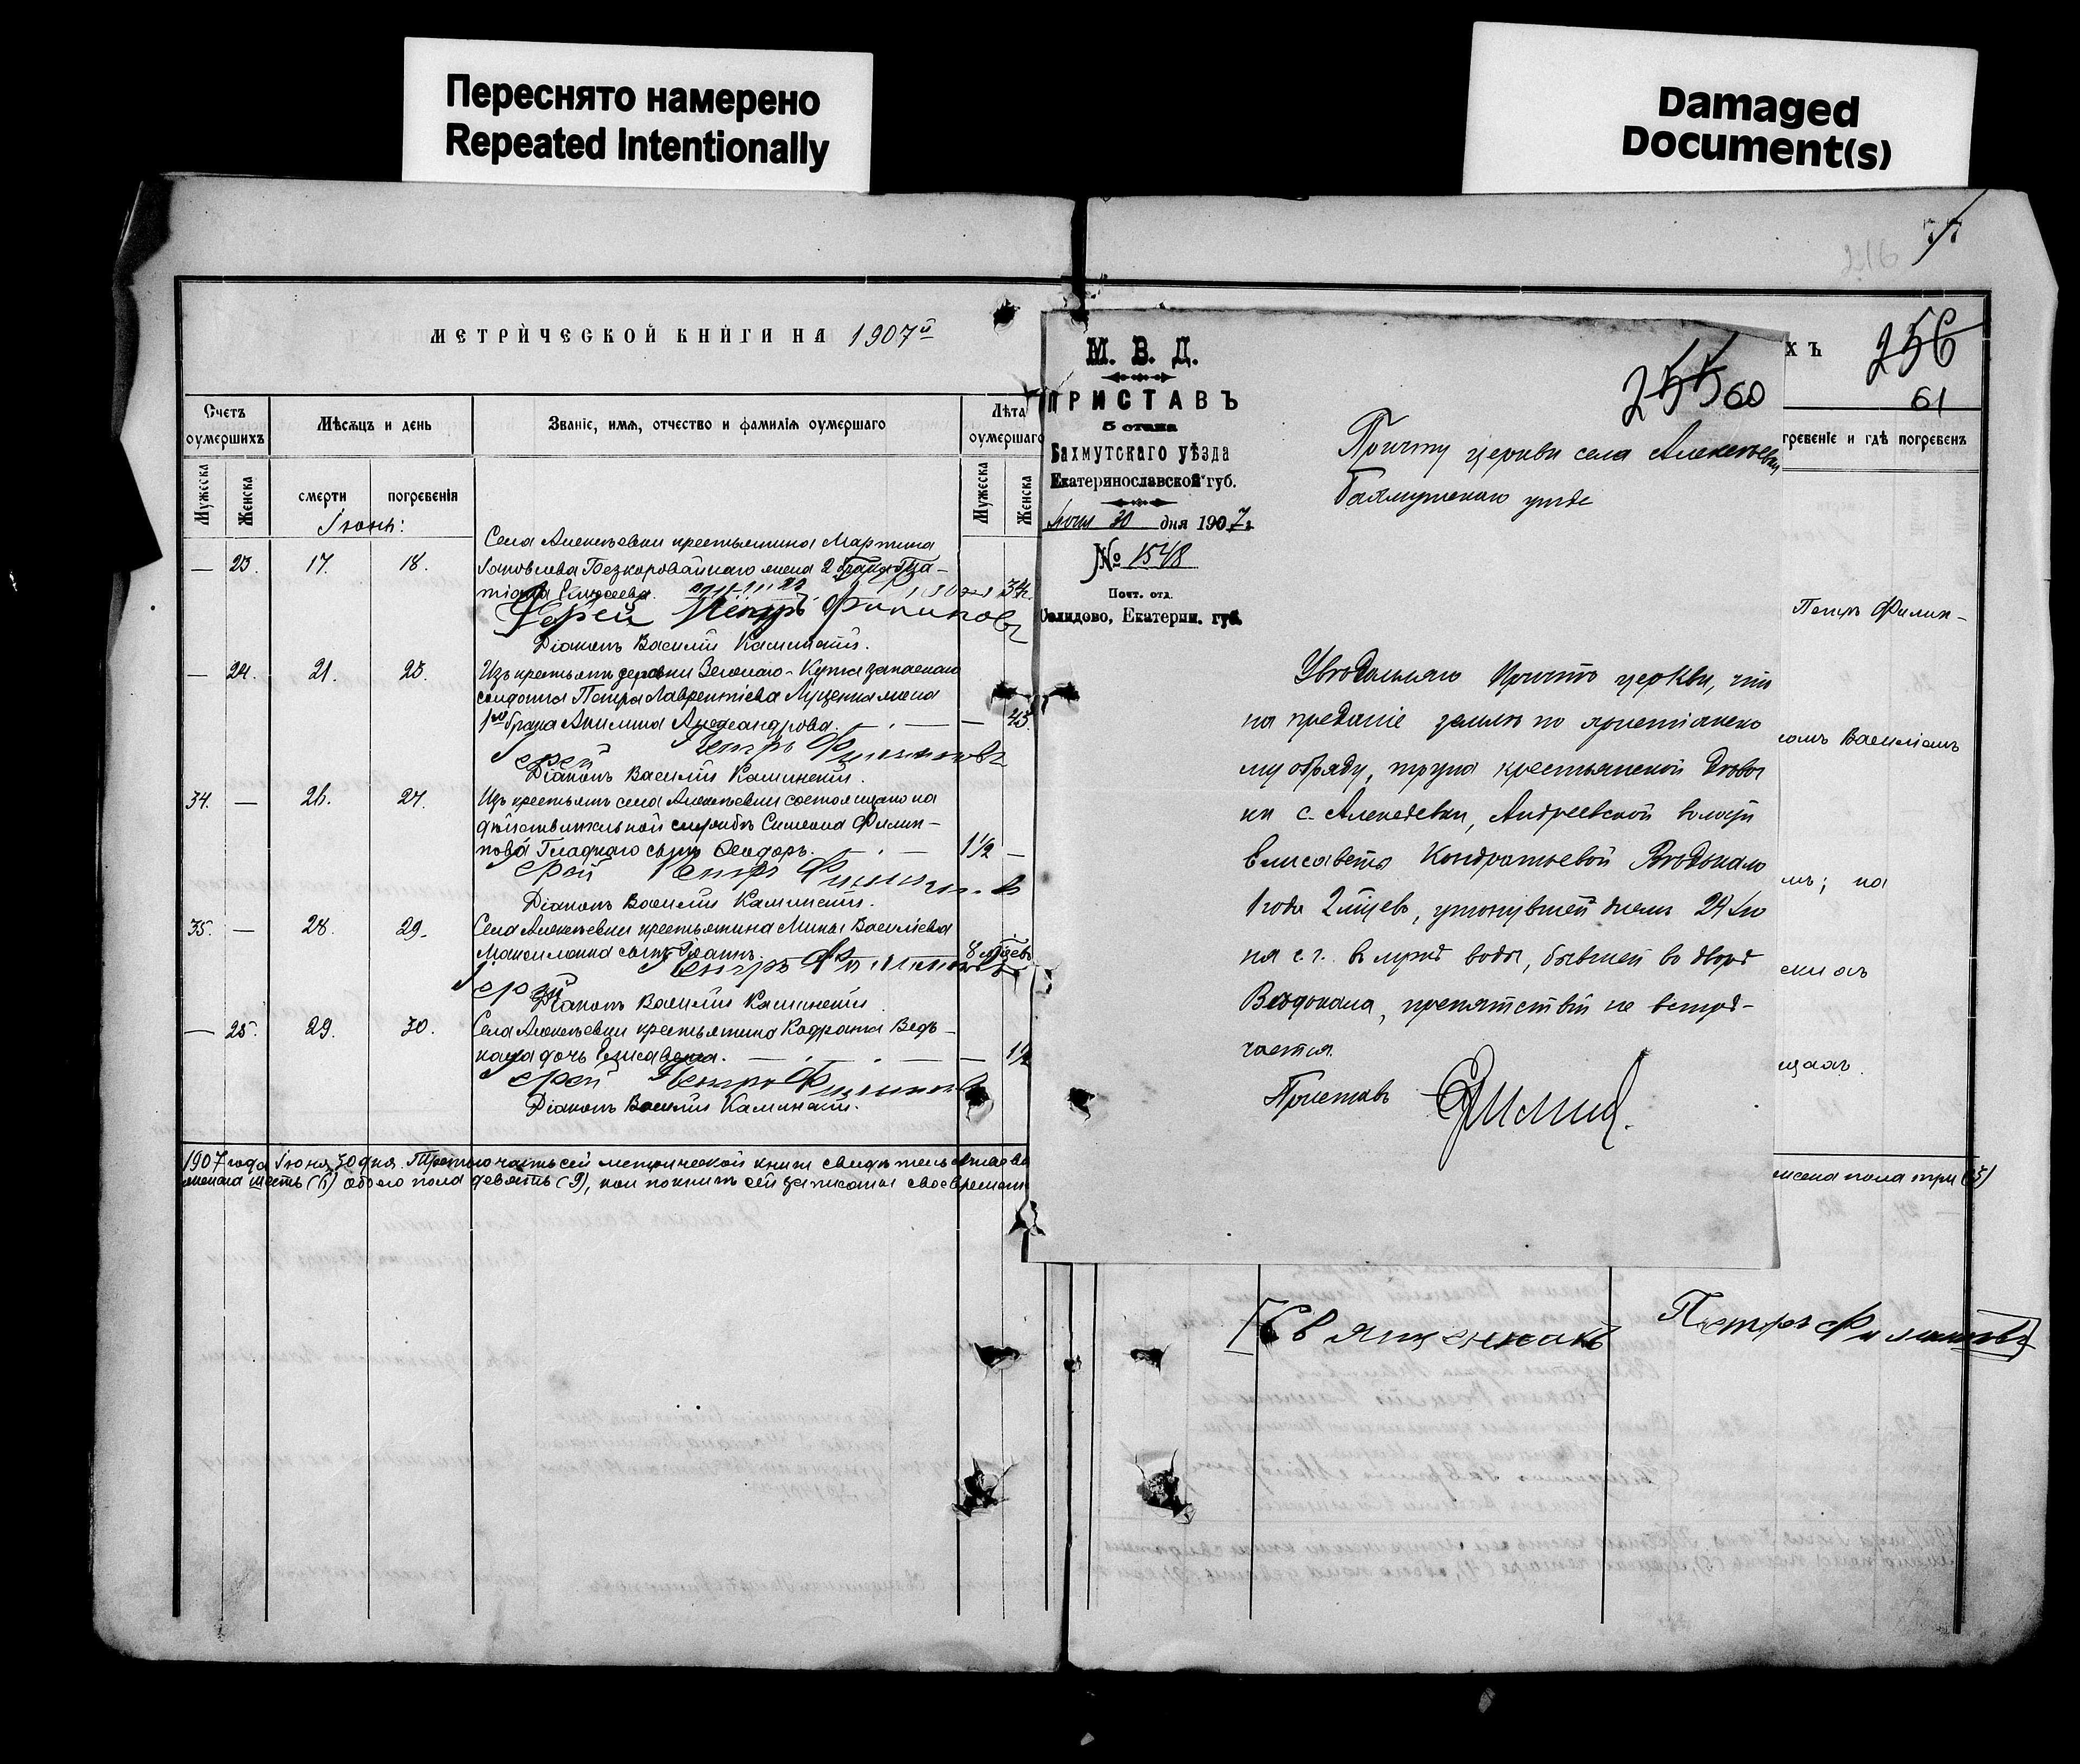 Переснято намерено
Repeated Intentionally
Damaged
Document(s)
МЕТРИЧЕСКОЙ КНИГИ НА 1907й
Счетъ оумершихъ
Мѣсяцъ и день
Званіе, имя, отчество и фамилія оумершаго
Лѣта оумершаго
Мужеска
Женска
смерти
погребенія
Мужеска
Женска
Іюнь:
Села Алексѣевки крестьянина Мартина
— 23. 17. 18. Яковлева Безкоровайнаго жена 2 брака Та-
тіана Елисеева. 34.
Іерей Петръ Филиповъ
Діаконъ Василій Каминскій.
— 24. 21. 23. Изъ крестьянъ деревни Зеленаго-Кута запаснаго
солдата Петра Лаврентіева Луценка жена
1го брака Акилина Александрова. — 43.
Іерей Петръ Филиповъ
Діаконъ Василій Каминскій.
34. — 26. 27. Изъ крестьянъ села Алексѣевки состоящаго на
дѣйствительной службѣ Симеона Филип-
пова Гладкаго сынъ Ѳеодоръ. 1½ —
Іерей Петръ Филиповъ
Діаконъ Василій Каминскій.
35. — 28. 29. Села Алексѣевки крестьянина Мины Василіева
Максименка сынъ Іоаннъ. 8 мѣсяцевъ
Іерей Петръ Филиповъ
Діаконъ Василій Каминскій
— 25. 29. 30. Села Алексѣевки крестьянина Кодрата Ведь-
кала дочь Елисавета. — 1½
Іерей Петръ Филиповъ
Діаконъ Василій Каминскій.
1907 года Іюня 30 дня. Третью часть сей метрической книги
женска шесть (6) обоего пола девять (9), кои по книгѣ сей записаны своевремен
М. В. Д.
ПРИСТАВЪ
5 стана
Бахмутскаго уѣзда
Екатеринославской губ.
30 дня 1907 г.
№ 1548
Почт. отд.
Селидово, Екатерин. губ.
255 60
Причту церкви села Алексѣевки
Бахмутскаго уѣзда
Увѣдомляю Причтъ церкви, что
на преданіе землѣ по христіанско
му обряду, трупа крестьянской дѣвоч
ки с. Алексѣевки, Андреевской волости
Елисаветы Кондратьевой
1 года 2 мѣсяцевъ, утонувшей днемъ 29 Iю
ня с. г. въ лужѣ воды, бывшей во дворѣ
препятствій не встрѣ-
чается.
Приставъ
77
216
ХЪ
256
61
гребеніе и гдѣ погребенъ
Петръ Филип-
сомъ Василіемъ
на
щахъ
женска пола три (3)
[Священникъ Петръ Филиповъ]